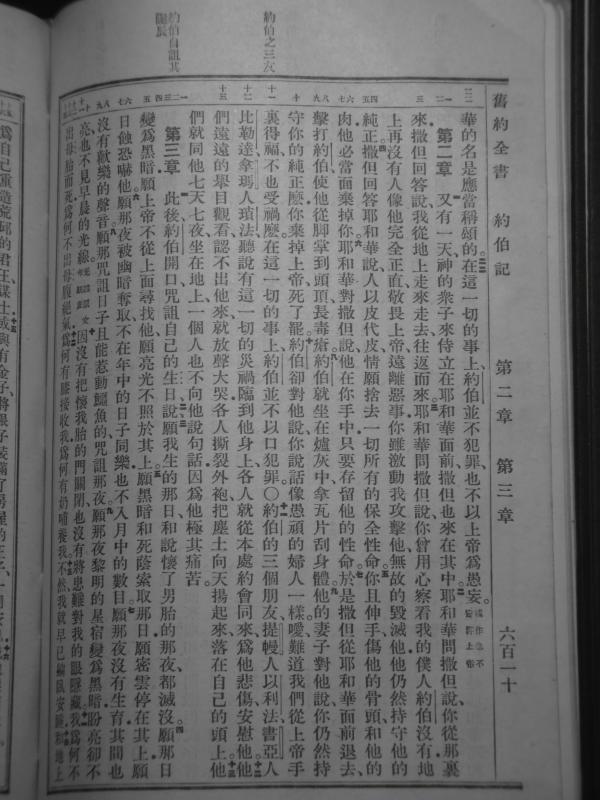 舊約全書 約伯記 第二章 第三章 六百一十
約伯之三友
約伯自詛其誕辰
華的名是應當稱頌的在這一切的事上約伯並不犯罪也不以上帝爲愚妄
第二章 又有一天神的衆子來侍立在耶和華面前撒但也來在其中耶和華問撒但說你從那裏
來撒但回答說我從地上走來走去往返而來耶和華問撒但說你曾用心察看我的僕人約伯沒有地
上再沒有人像他完全正直敬畏上帝遠離惡事你雖激動我攻擊他無故的毀滅他他仍然持守他的
純正撒但回答耶和華說人以皮代皮情願捨去一切所有的保全性命你且伸手傷他的骨頭和他的
肉他必當面棄掉你耶和華對撒但說他在你手中只要存留他的性命於是撒但從耶和華面前退去
擊打約伯使他從脚掌到頭頂長毒瘡約伯就坐在爐灰中拿瓦片刮身體他的妻子對他說你仍然持
守你的純正麼你棄掉上帝死了罷約伯卻對他說你說話像愚頑的婦人一樣噯難道我們從上帝手
裏得福不也受禍麼在這一切的事上約伯並不以口犯罪○約伯的三個朋友提幔人以利法書亞人
比勒達拿瑪人瑣法聽說有這一切的災禍臨到他身上各人就從本處約會同來爲他悲傷安慰他他
們遠遠的舉目觀看認不出他來就放聲大哭各人撕裂外袍把塵土向天揚起來落在自己的頭上他
們就同他七天七夜坐在地上一個人也不向他說句話因爲他極其痛苦
第三章 此後約伯開口咒詛自己的生日說願我生的那日和說懷了男胎的那夜都滅沒願那日
變爲黑暗願上帝不從上面尋找他願亮光不照於其上願黑暗和死蔭索取那日願密雲停在其上願
日蝕恐嚇他願那夜被幽暗奪取不在年中的日子同樂也不入月中的數目願那夜沒有生育其間也
沒有歡樂的聲音願那咒詛日子且能惹動鱷魚的咒詛那夜願那夜黎明的星宿變爲黑暗盼亮卻不
亮也不見早晨的光線因沒有把懷我胎的門關閉也沒有將患難對我的眼隱藏我爲何不
出母胎而死爲何不出母腹絕氣爲何有膝接收我爲何有奶哺養我不然我就早已躺臥安睡和地上
爲自己重造荒邱的君王謀士或與有金子將銀子裝滿了房屋的王子一同安